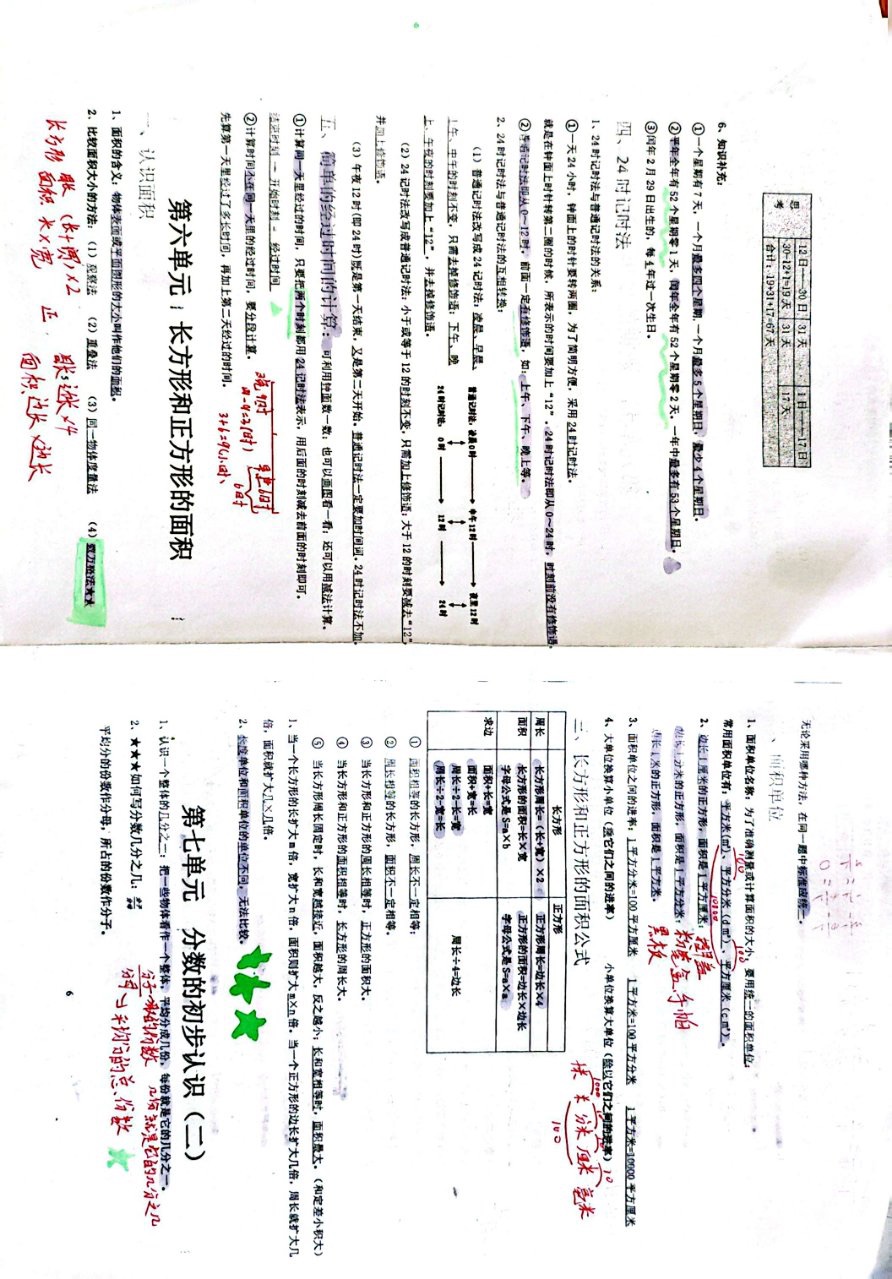 思考
12日——30日 31天 1日——17日
30-12+1=19天 31天 17天
合计：19+31+17=67天
6、知识补充：
①一个星期有7天，一个月最多四个星期，一个月最多5个星期日，最少4个星期日。
②平年全年有52个星期零1天，闰年全年有52个星期零2天。一年中最多有53个星期日。
③闰年2月29日出生的，每4年过一次生日。
四、24时记时法
1、24时记时法与普通记时法的关系：
①一天24小时，钟面上的时针要转两圈，为了简明方便，采用24时记时法。
就是在钟面上时针转第二圈的时候，所表示的时间要加上“12”。24时记时法即从0～24时，时刻前没有修饰语。
②普通记时法即从0～12时，前面一定有修饰语，如：上午、下午、晚上等。
2、24时记时法与普通记时法的互相转换：
（1）普通记时法改写成24记时法：凌晨、早晨、
上午、中午的时刻不变，只需去掉修饰语；下午、晚
上、午夜的时刻要加上“12”，并去掉修饰语。
普通记时法：凌晨0时 中午12时 夜里12时
24时记时法： 0时 12时 24时
（2）24记时法改写成普通记时法：小于或等于12的时刻不变，只需加上修饰语；大于12的时刻要减去“12”
并加上修饰语。
（3）午夜12时(即24时)既是第一天结束，又是第二天开始。普通记时法一定要加时间词，24时记时法不加。
五、简单的经过时间的计算：可利用钟面数一数；也可以画图看一看；还可以用减法计算。
①计算同一天里经过的时间，只要把两个时刻都用24记时法表示，用后面的时刻减去前面的时刻即可。
结束时刻 － 开始时刻 ＝ 经过时间
②计算时间不在同一天里的经过时间，要分段计算。
先算第一天里经过了多长时间，再加上第二天经过的时间。
晚9时
早晨6时
6时
3+6=9(小时)
第六单元 长方形和正方形的面积
一、认识面积
1、面积的含义：物体表面或平面图形的大小叫作他们的面积。
2、比较面积大小的方法：（1）观察法 （2）重叠法 （3）同一物体度量法 （4）数方格法★★
长方形 周长 (长+宽)×2 正 周长：边长×4
面积 长×宽 面积：边长×边长
无论采用哪种方法，在同一题中标准应统一。
二、面积单位
1、面积单位名称：为了准确测量或计算面积的大小，要用统一的面积单位；
常用面积单位有：平方米(㎡)、平方分米(d㎡)、平方厘米(c㎡)。
100 100
10000
2、边长1厘米的正方形，面积是1平方厘米；
边长1分米的正方形，面积是1平方分米；粉笔盒、手帕
边长1米的正方形，面积是1平方米。 黑板
3、面积单位之间的进率：1平方分米=100平方厘米 1平方米=100平方分米 1平方米=10000平方厘米
4、大单位换算小单位（乘它们之间的进率） 小单位换算大单位（除以它们之间的进率）
1000 10
米 分米 厘米 毫米
100
三、长方形和正方形的面积公式
长方形 正方形
周长 长方形周长=（长+宽）×2 正方形周长=边长×4
面积 长方形的面积=长×宽 正方形的面积=边长×边长
字母公式是S=a×b 字母公式是S=a×a
求边 面积÷长=宽
面积÷宽=长
周长÷2－长=宽 周长÷4=边长
周长÷2－宽=长
① 面积相等的长方形，周长不一定相等；
② 周长相等的长方形，面积不一定相等。
③ 当长方形和正方形的周长相等时，正方形的面积大。
④ 当长方形和正方形的面积相等时，长方形的周长大。
⑤ 当长方形周长固定时，长和宽越接近，面积越大，反之越小；长和宽相等时，面积最大。（和定差小积大）
1、当一个长方形的长扩大m倍，宽扩大n倍，面积则扩大m×n倍。当一个正方形的边长扩大几倍，周长就扩大几
倍，面积就扩大几×几倍。
2、长度单位和面积单位的单位不同，无法比较。
第七单元 分数的初步认识（二）
1、认识一个整体的几分之一：把一些物体看作一个整体，平均分成几份，每份就是它的几分之一。
分子→取的份数 几份就是它的几分之几
2、★★★如何写分数几分之几：
分母→平均分的总份数
平均分的份数作分母，所占的份数作分子。
6